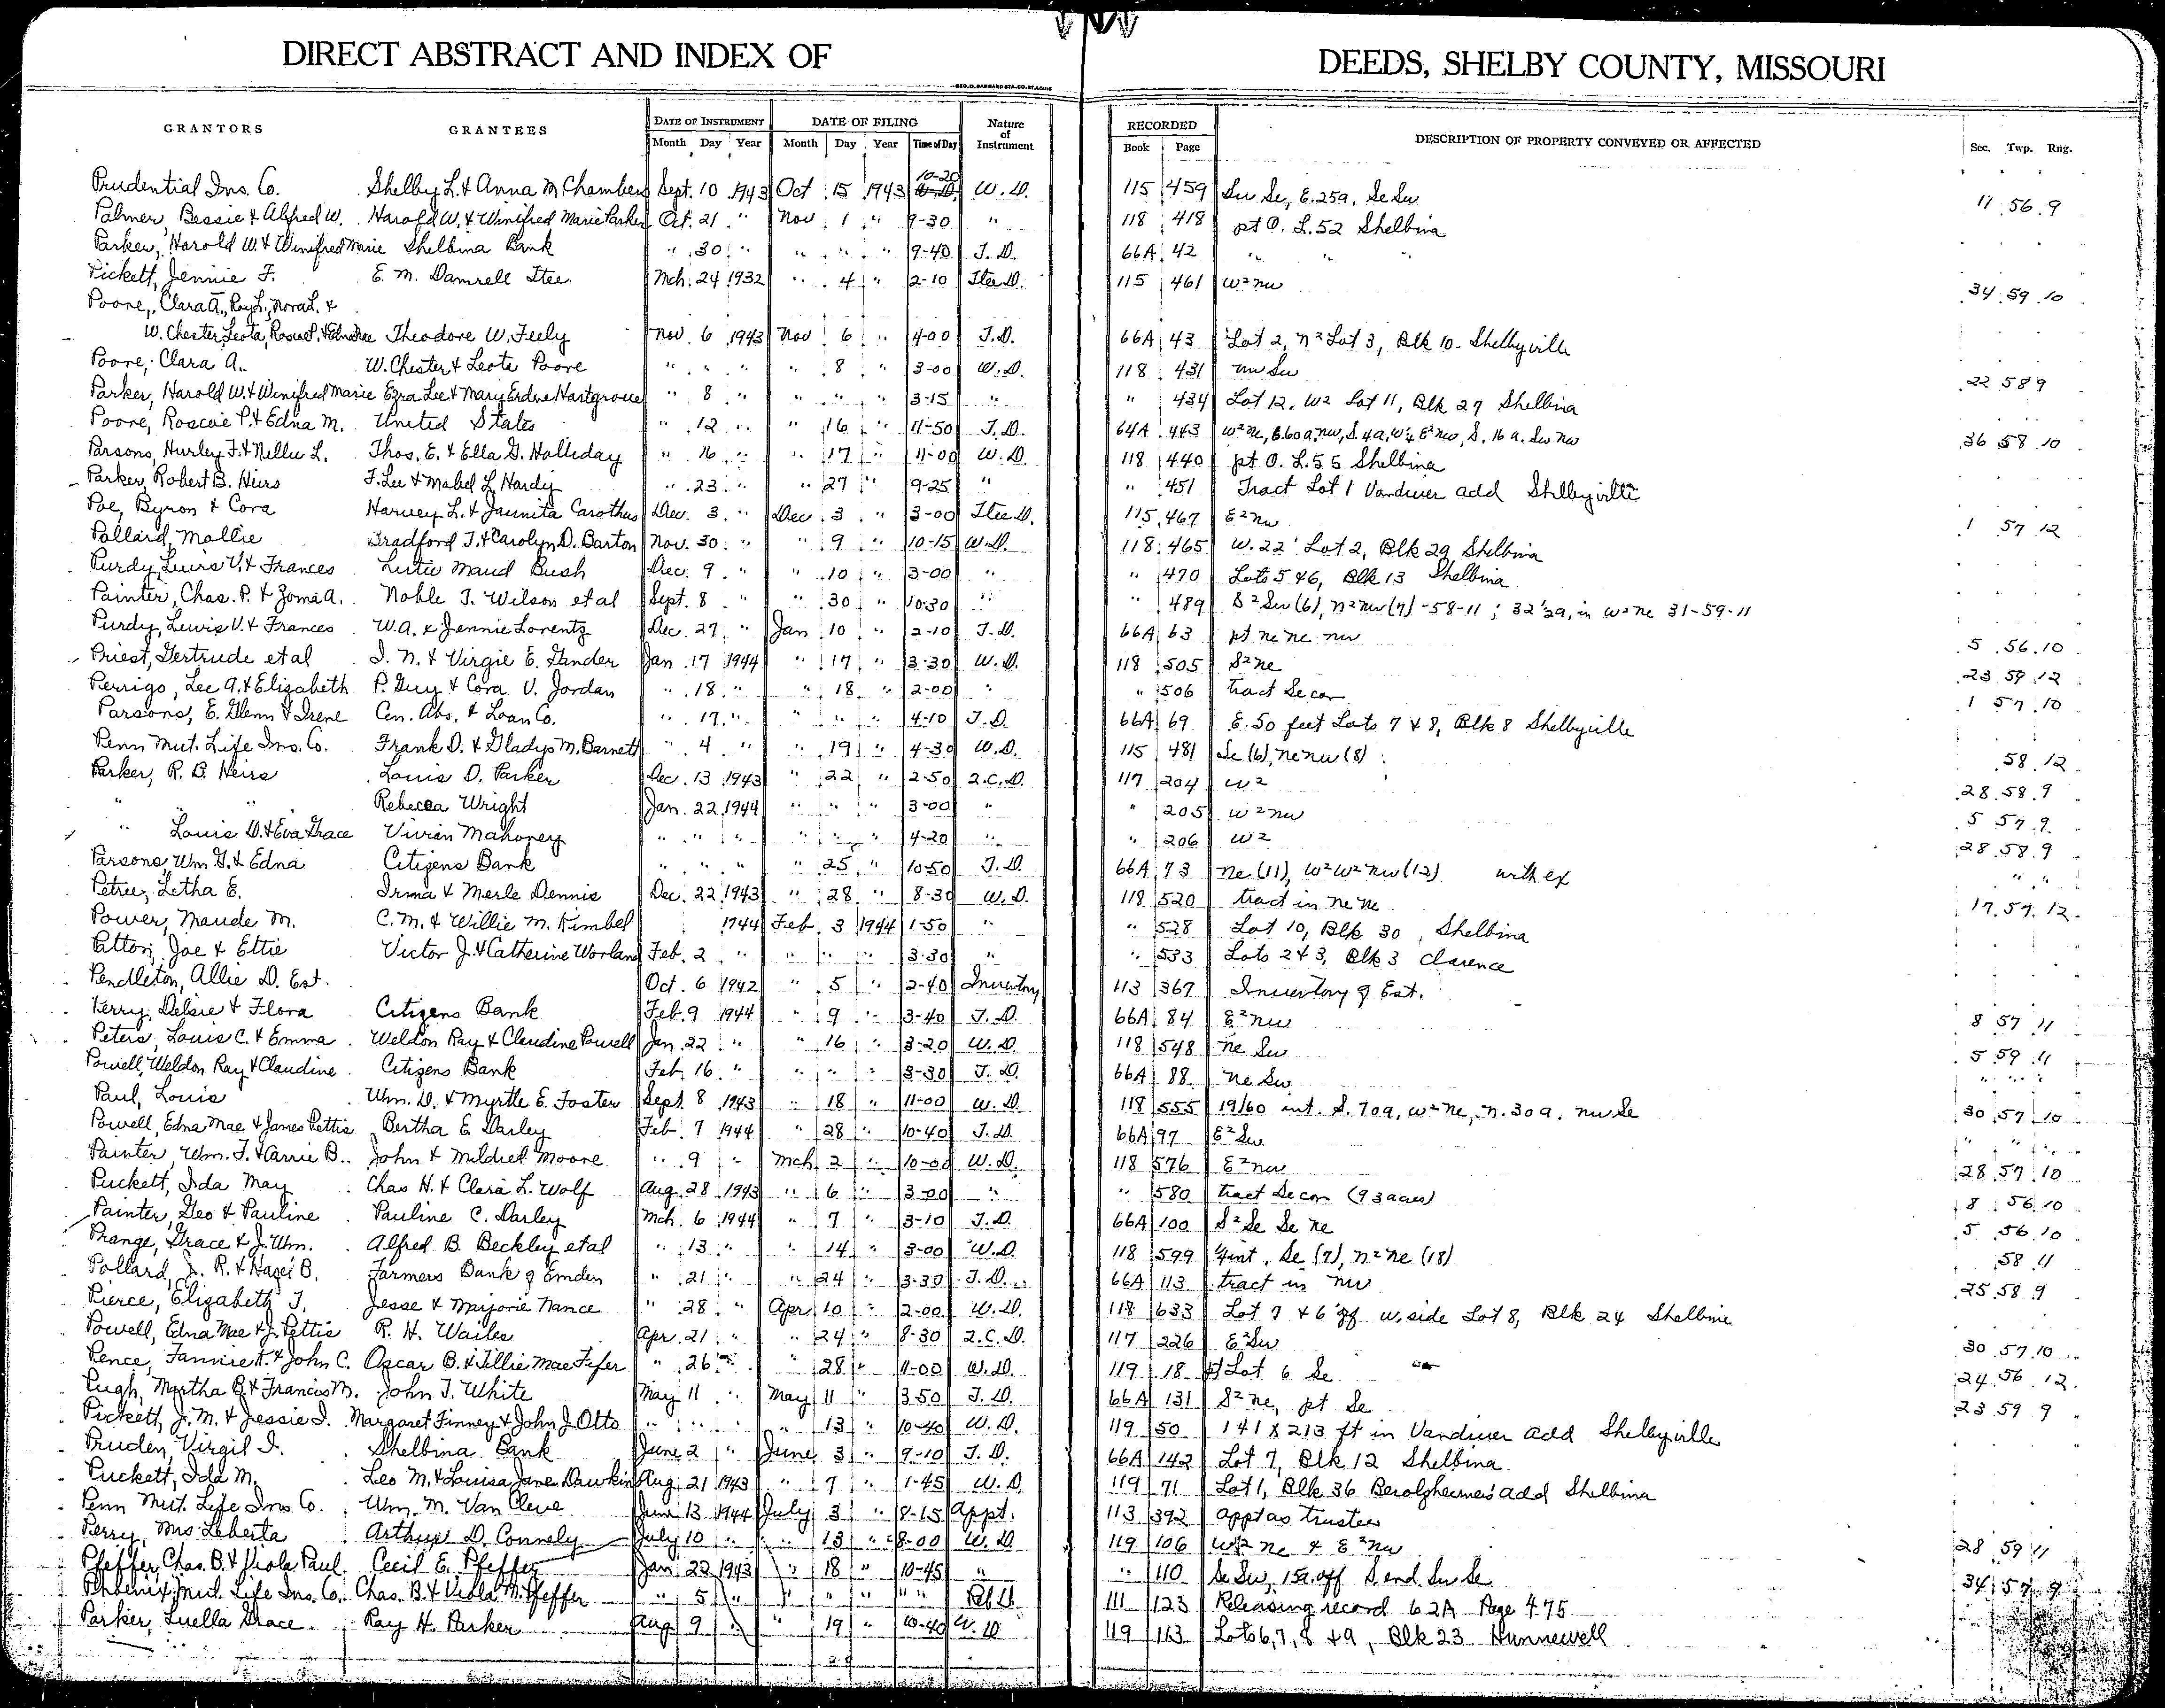 DIRECT ABSTRACT AND INDEX OF DEEDS, SHELBY COUNTY, MISSOURI
GEO.D.BARNARD STA.CO.ST.LOUIS
GRANTORS GRANTEES DATE OF INSTRUMENT DATE OF FILING Nature of Instrument RECORDED DESCRIPTION OF PROPERTY CONVEYED OR AFFECTED Sec. Twp. Rng.
Month Day Year Month Day Year Time of Day Book Page
Prudential Ins. Co. Shelby L. & Anna M. Chambers Sept. 10 1943 Oct 15 1943 10-20 W.D. 115 459 Sw Se, E.25a. Se Sw 11 56 9
Palmer, Bessie & Alfred W. Harold W. & Winifred Marie Parker Oct. 21 " Nov 1 " 9-30 " 118 418 pt O. L. 52 Shelbina
Parker, Harold W. & Winifred Marie Shelbina Bank " 30 " " " " 9-40 T.D. 66A 42 " " "
Pickett, Jennie F. E. M. Damrell Ttee. Mch. 24 1932 " 4 " 2-10 Ttee D. 115 461 W² nw 34 59 10
Poore, Clara A., Roy L., Nora L. &
W. Chester, Leota, Roscoe P. & Edna Mae Theodore W. Feely Nov. 6 1943 Nov 6 " 4-00 T.D. 66A 43 Lot 2, N² Lot 3, Blk 10 Shelbyville
Poore, Clara A. W. Chester & Leota Poore " " " " 8 " 3-00 W.D. 118 431 nw Sw 22 58 9
Parker, Harold W. & Winifred Marie Ezra Lee & Mary Erdene Hartgrove " 8 " " " " 3-15 " " 434 Lot 12, W² Lot 11, Blk 27 Shelbina
Poore, Roscoe P. & Edna M. United States " 12 " " 16 " 11-50 T.D. 64A 443 W² ne, E.60a, nw, S. 4a, W¼ E² nw, S. 16 a. Sw nw 36 58 10
Parsons, Hurley F. & Nellie L. Thos. E. & Ella G. Holliday " 16 " " 17 " 11-00 W.D. 118 440 pt O. L. 55 Shelbina
Parker, Robert B. Heirs F. Lee & Mabel L. Hardy " 23 " " 27 " 9-25 " " 451 Tract Lot 1 Vandiver add Shelbyville
Poe, Byron & Cora Harvey L. & Jaunita Carothers Dec. 3 " Dec. 3 " 3-00 Ttee D. 115 467 E² nw 1 57 12
Pollard, Mollie Bradford T. & Carolyn D. Barton Nov. 30 " " 9 " 10-15 W.D. 118 465 W. 22' Lot 2, Blk 29 Shelbina
Purdy, Lewis V. & Frances Lutie Maud Bush Dec. 9 " " 10 " 3-00 " " 470 Lots 5 & 6, Blk 13 Shelbina
Painter, Chas. P. & Zoma A. Noble T. Wilson et al Sept. 8 " " 30 " 10-30 " " 489 S² Sw (6), N² nw (7) -58-11; 32½a, in W² ne 31-59-11
Purdy, Lewis V. & Frances W.A. & Jennie Lorentz Dec. 27 " Jan 10 " 2-10 T.D. 66A 63 pt ne ne nw 5 56 10
Priest, Gertrude et al I. N. & Virgie E. Gander Jan. 17 1944 " 17 " 3-30 W.D. 118 505 S² ne 23 59 12
Perrigo, Lee A. & Elizabeth P. Guy & Cora V. Jordan " 18 " " 18 " 2-00 " " 506 tract Se cor 1 57 10
Parsons, E. Glenn & Irene Cen. Abs. & Loan Co. " 17 " " " " 4-10 T.D. 66A 69 E. 50 feet Lots 7 & 8, Blk 8 Shelbyville
Penn Mut. Life Ins. Co. Frank D. & Gladys M. Barnett " 4 " " 19 " 4-30 W.D. 115 481 Se (6), ne nw (8) 58 12
Parker, R. B. Heirs Louis D. Parker Dec. 13 1943 " 22 " 2-50 Q.C.D. 117 204 W² 28 58 9
" " Rebecca Wright Jan. 22 1944 " " " 3-00 " " 205 W² nw 5 57 9
" Louis D. & Eva Grace Vivian Mahoney " " " " " " 4-20 " " 206 W² 28 58 9
Parsons, Wm G. & Edna Citizens Bank " " " " 25 " 10-50 T.D. 66A 73 ne (11), W² W² nw (12) with ex " "
Petree, Letha E. Irma & Merle Dennis Dec. 22 1943 " 28 " 8-30 W.D. 118 520 tract in ne ne 17 57 12
Power, Maude M. C. M. & Willie M. Kimbel 1944 Feb 3 1944 1-50 " " 528 Lot 10, Blk 30, Shelbina
Patton, Joe & Ettie Victor J. & Catherine Worland Feb. 2 " " " " 3-30 " " 533 Lots 2 & 3, Blk 3 Clarence
Pendleton, Allie D. Est. Oct. 6 1942 " 5 " 2-40 Inventory 113 367 Inventory of Est.
Perry, Delsie & Flora Citizens Bank Feb. 9 1944 " 9 " 3-40 T.D. 66A 84 E² nw 8 57 11
Peters, Louis C. & Emma Weldon Ray & Claudine Powell Jan. 22 " " 16 " 3-20 W.D. 118 548 ne Sw 5 59 11
Powell, Weldon Ray & Claudine Citizens Bank Feb. 16 " " " " 3-30 T.D. 66A 88 ne Sw " " "
Paul, Louis Wm. D. & Myrtle E. Foster Sept. 8 1943 " 18 " 11-00 W.D. 118 555 19/60 int. S. 70a, W² ne, N. 30a. nw Se 30 57 10
Powell, Edna Mae & James Pettis Bertha E. Darley Feb. 7 1944 " 28 " 10-40 T.D. 66A 97 E² Sw " " "
Painter, Wm. T. & Carrie B. John & Mildred Moore " 9 " Mch 2 " 10-00 W.D. 118 576 E² nw 28 57 10
Puckett, Ida May Chas H. & Clara L. Wolf Aug. 28 1943 " 6 " 3-00 " " 580 tract Se cor (93 acres) 8 56 10
Painter, Geo & Pauline Pauline C. Darley Mch. 6 1944 " 7 " 3-10 T.D. 66A 100 S² Se Se ne 5 56 10
Prange, Grace & J. Wm. Alfred B. Beckley et al " 13 " " 14 " 3-00 W.D. 118 599 int. Se (7), N² ne (18) 58 11
Pollard, J. R. & Hazel B. Farmers Bank of Emden " 21 " " 24 " 3-30 T.D. 66A 113 tract in nw 25 58 9
Pierce, Elizabeth T. Jesse & Marjorie Nance " 28 " Apr 10 " 2-00 W.D. 118 633 Lot 7 & 6' off W. side Lot 8, Blk 24 Shelbina
Powell, Edna Mae & J. Pettis R. H. Wailes Apr. 21 " " 24 " 8-30 Q.C.D. 117 226 E² Sw 30 57 10
Pence, Fannie K. & John C. Oscar B. & Tillie Mae Fifer " 26 " " 28 " 11-00 W.D. 119 18 pt Lot 6 Se 24 56 12
Pugh, Martha B. & Francis M. John T. White May 11 " May 11 " 3-50 T.D. 66A 131 S² ne, pt Se 23 59 9
Pickett, J. M. & Jessie I. Margaret Finney & John J. Otto " " " " 13 " 10-40 W.D. 119 50 141 x 213 ft in Vandiver add Shelbyville
Pruden, Virgil I. Shelbina Bank June 2 " June 3 " 9-10 T.D. 66A 142 Lot 7, Blk 12 Shelbina
Puckett, Ida M. Leo M. & Louisa Jane Dawkins Aug. 21 1943 " 7 " 1-45 W.D 119 71 Lot 1, Blk 36 add Shelbina
Penn Mut. Life Ins Co. Wm. M. Van Cleve June 13 1944 July 3 " 8-15 Appt. 113 392 appt as trustee
Perry, Mrs Leberta Arthur D. Connely July 10 " " 13 " 8-00 W.D 119 106 W² ne & E² nw 28 59 11
Pfeffer, Chas. B. & Viola Paul Cecil E. Pfeffer Jan 22 1943 " 18 " 10-45 " " 110 Se Sw, 15a. off S. end Sw Se 34 57 9
Phoenix Mut. Life Ins. Co. Chas. B. & Viola M. Pfeffer " 5 " " " " " " Rel D. 111 123 Releasing record 62A Page 475
Parker, Luella Grace Ray H. Parker Aug 9 " " 19 " 10-40 W.D 119 113 Lots 6, 7, 8 & 9, Blk 23 Hunnewell